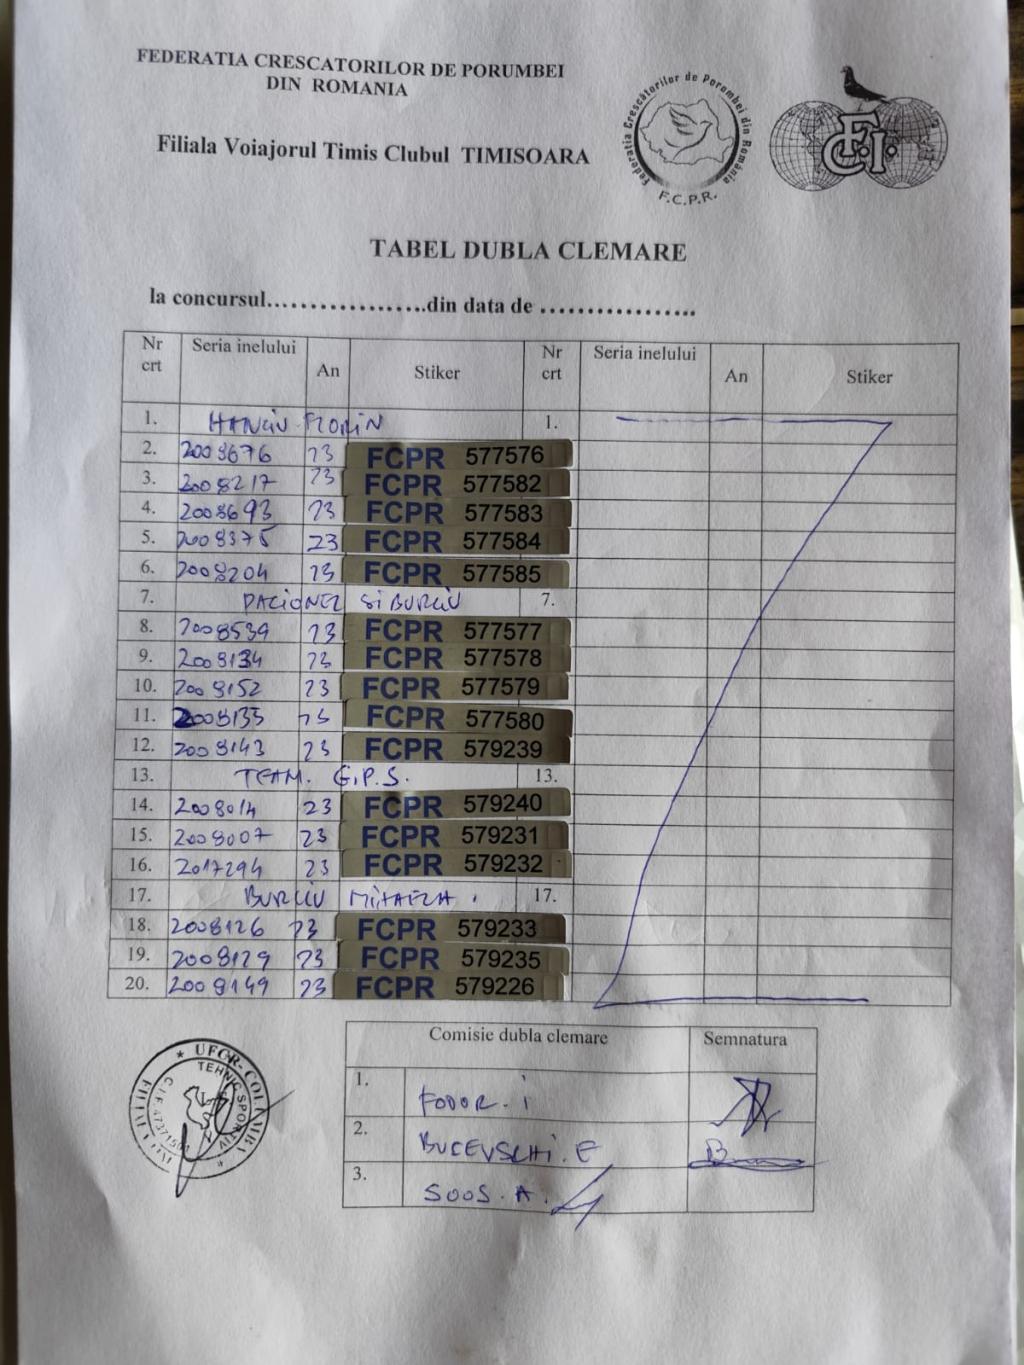 FEDERATIA CRESCATORILOR DE PORUMBEI
DIN ROMANIA
Filiala Voiajorul Timis Clubul TIMISOARA
Federatia Crescătorilor de Porumbei din România
F.C.P.R.
F.C.I.
TABEL DUBLA CLEMARE
la concursul..................din data de .................
Nr crt Seria inelului An Stiker Nr crt Seria inelului An Stiker
1. HANCIU FLORIN 1.
2. 2008676 23 FCPR 577576
3. 2008217 23 FCPR 577582
4. 2008693 23 FCPR 577583
5. 2008375 23 FCPR 577584
6. 2008204 23 FCPR 577585
7. SI BURCIU 7.
8. 2008539 23 FCPR 577577
9. 2008134 23 FCPR 577578
10. 2008152 23 FCPR 577579
11. 2008135 23 FCPR 577580
12. 2008143 23 FCPR 579239
13. TEAM. G.P.S. 13.
14. 2008014 23 FCPR 579240
15. 2008007 23 FCPR 579231
16. 2017294 23 FCPR 579232
17. BURCIU MIHAELA. 17.
18. 2008126 23 FCPR 579233
19. 2008129 23 FCPR 579235
20. 2008149 23 FCPR 579226
Comisie dubla clemare Semnatura
1. FODOR. i
2. BUCEVSCHI. E
3. SOOS. A.
* UFCR-COLUMBA *
TEHNIC SPORTIV